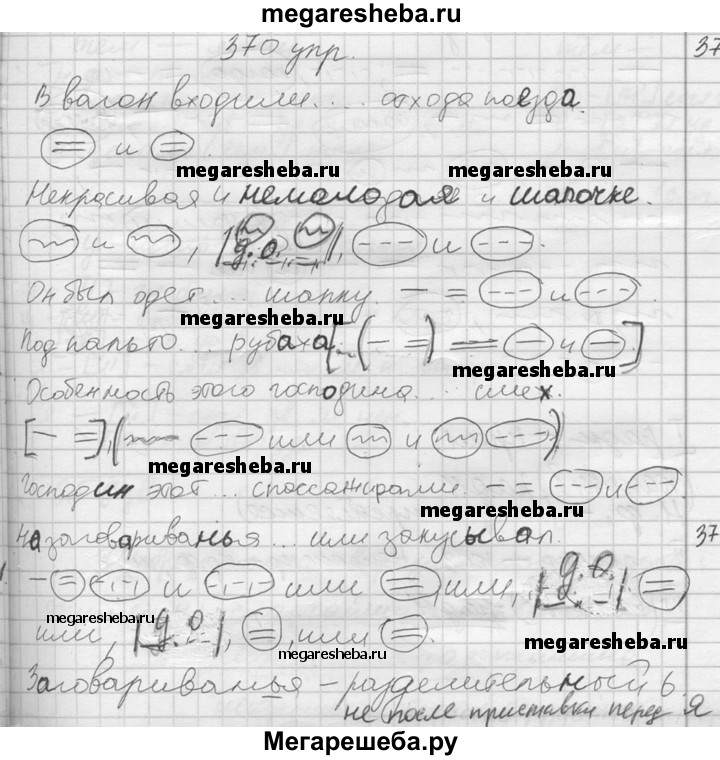 megaresheba.ru
370 упр. 37
В вагон входили... отхода поезда.
и
megaresheba.ru megaresheba.ru
Некрасивая и немолодая и шапочке.
и , |д.о.|, и .
Он был одет... шапку. — = и .
megaresheba.ru
Под пальто... рубаха [ (— =) — и ]
megaresheba.ru
Особенность этого господина... смех.
[— =], ( или и )
megaresheba.ru
Господин этот... с пассажирами. — = и .
megaresheba.ru
На заговариванья... или закусывал. 37
— и или , или, |д.о.|
megaresheba.ru
или, |д.о.|, , или .
megaresheba.ru megaresheba.ru
Заговариванья – разделительный ь
не после приставки перед я
Мегарешеба.ру